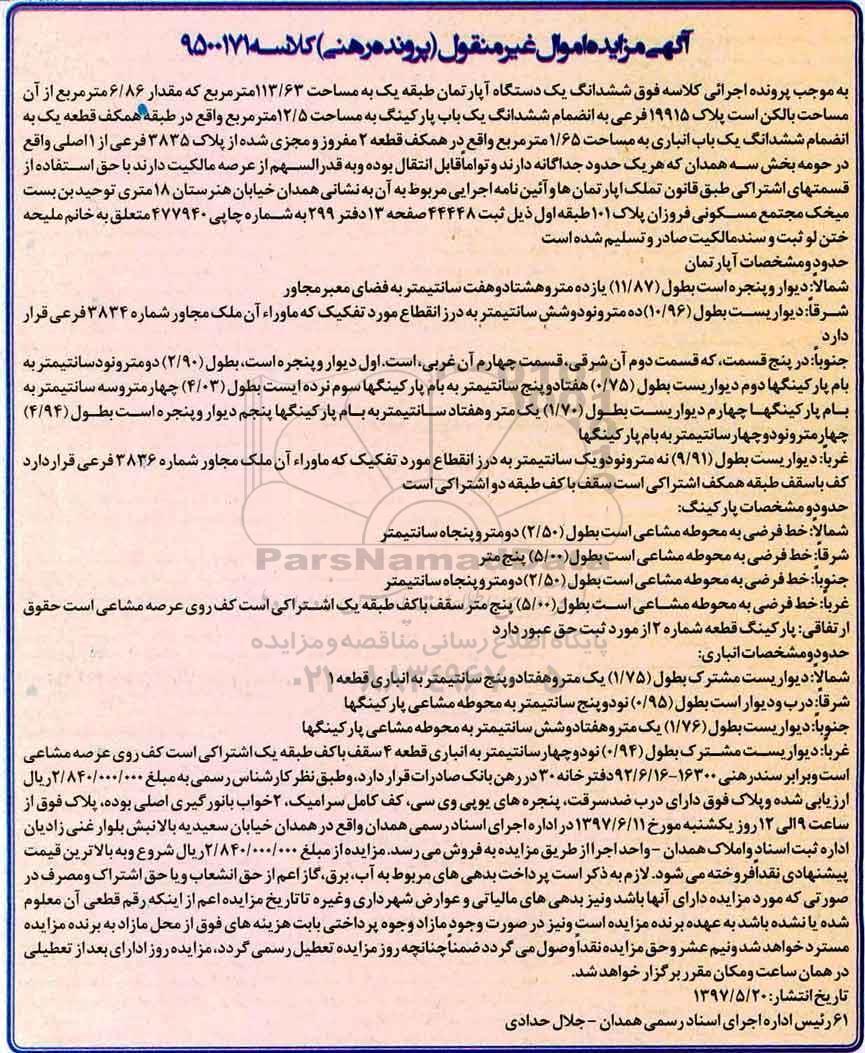 آگهی مزایده اموال غیر منقول (پرونده رهنی) کلاسه ۹۵۰۰۱۷۱
به موجب پرونده اجرائی کلاسه فوق ششدانگ یک دستگاه آپارتمان طبقه یک به مساحت ۱۱۳/۶۳مترمربع که مقدار ۶/۸۶ مترمربع از آن
مساحت بالکن است پلاک ۱۹۹۱۵ فرعی به انضمام ششدانگ یک باب پارکینگ به مساحت ۱۲/۵مترمربع واقع در طبقه همکف قطعه یک به
انضمام ششدانگ یک باب انباری به مساحت ۱/۶۵ مترمربع واقع در همکف قطعه ۲ مفروز و مجزی شده از پلاک ۳۸۳۵ فرعی از ۱ اصلی واقع
در حومه بخش سه همدان که هریک حدود جداگانه دارند و تواماً قابل انتقال بوده وبه قدرالسهم از عرصه مالکیت دارند با حق استفاده از
قسمتهای اشتراکی طبق قانون تملک اپارتمان ها و آئین نامه اجرایی مربوط به آن به نشانی همدان خیابان هنرستان ۱۸ متری توحید بن بست
میخک مجتمع مسکونی فروزان پلاک ۱۰۱ طبقه اول ذیل ثبت ۴۴۴۴۸ صفحه ۱۳ دفتر ۲۹۹ به شماره چاپی ۴۷۷۹۴۰ متعلق به خانم ملیحه
ختن لو ثبت و سند مالکیت صادر و تسلیم شده است
حدود و مشخصات آپارتمان
شمالاً: دیوار و پنجره است بطول (۱۱/۸۷) یازده متر و هشتاد و هفت سانتیمتر به فضای معبر مجاور
شرقاً: دیواریست بطول (۱۰/۹۶) ده متر و نود و شش سانتیمتر به درز انقطاع مورد تفکیک که ماوراء آن ملک مجاور شماره ۳۸۳۴ فرعی قرار
دارد
جنوباً: در پنج قسمت، که قسمت دوم آن شرقی، قسمت چهارم آن غربی، است. اول دیوار و پنجره است، بطول (۲/۹۰) دو متر و نود سانتیمتر به
بام پارکینگها دوم دیواریست بطول (۰/۷۵) هفتاد و پنج سانتیمتر به بام پارکینگها سوم نرده ایست بطول (۴/۰۳) چهار متر و سه سانتیمتر به
بام پارکینگها چهارم دیواریست بطول (۱/۷۰) یک متر و هفتاد سانتیمتر به بام پارکینگها پنجم دیوار و پنجره است بطول (۴/۹۴)
چهار متر و نود و چهار سانتیمتر به بام پارکینگها
غرباً: دیواریست بطول (۹/۹۱) نه متر و نود و یک سانتیمتر به درز انقطاع مورد تفکیک که ماوراء آن ملک مجاور شماره ۳۸۳۶ فرعی قرار دارد
کف باسقف طبقه همکف اشتراکی است سقف با کف طبقه دو اشتراکی است
حدود و مشخصات پارکینگ:
شمالاً: خط فرضی به محوطه مشاعی است بطول (۲/۵۰) دو متر و پنجاه سانتیمتر
شرقاً: خط فرضی به محوطه مشاعی است بطول (۵/۰۰) پنج متر
جنوباً: خط فرضی به محوطه مشاعی است بطول (۲/۵۰) دو متر و پنجاه سانتیمتر
غرباً: خط فرضی به محوطه مشاعی است بطول (۵/۰۰) پنج متر سقف با کف طبقه یک اشتراکی است کف روی عرصه مشاعی است حقوق
ارتفاقی: پارکینگ قطعه شماره ۲ از مورد ثبت حق عبور دارد
حدود و مشخصات انباری:
شمالاً: دیواریست مشترک بطول (۱/۷۵) یک متر و هفتاد و پنج سانتیمتر به انباری قطعه ۱
شرقاً: درب و دیوار است بطول (۰/۹۵) نود و پنج سانتیمتر به محوطه مشاعی پارکینگها
جنوباً: دیواریست بطول (۱/۷۶) یک متر و هفتاد و شش سانتیمتر به محوطه مشاعی پارکینگها
غرباً: دیواریست مشترک بطول (۰/۹۴) نود و چهار سانتیمتر به انباری قطعه ۴ سقف با کف طبقه یک اشتراکی است کف روی عرصه مشاعی
است وبرابر سند رهنی ۱۶۳۰۰-۹۲/۶/۱۶ دفترخانه ۳۰ در رهن بانک صادرات قرار دارد، و طبق نظر کارشناس رسمی به مبلغ ۲/۸۴۰/۰۰۰/۰۰۰ ریال
ارزیابی شده و پلاک فوق دارای درب ضد سرقت، پنجره های یو پی وی سی، کف کامل سرامیک، ۲ خواب با نورگیری اصلی بوده، پلاک فوق از
ساعت ۹ الی ۱۲ روز یکشنبه مورخ ۱۳۹۷/۶/۱۱ در اداره اجرای اسناد رسمی همدان واقع در همدان خیابان سعیدیه بالا نبش بلوار غنی زادیان
اداره ثبت اسناد و املاک همدان - واحد اجرا از طریق مزایده به فروش می رسد. مزایده از مبلغ ۲/۸۴۰/۰۰۰/۰۰۰ ریال شروع و به بالاترین قیمت
پیشنهادی نقداً فروخته می شود. لازم به ذکر است پرداخت بدهی های مربوط به آب، برق، گاز اعم از حق انشعاب و یا حق اشتراک و مصرف در
صورتی که مورد مزایده دارای آنها باشد و نیز بدهی های مالیاتی و عوارض شهرداری و غیره تا تاریخ مزایده اعم از اینکه رقم قطعی آن معلوم
شده یا نشده باشد به عهده برنده مزایده است و نیز در صورت وجود مازاد وجوه پرداختی بابت هزینه های فوق از محل مازاد به برنده مزایده
مسترد خواهد شد و نیم عشر و حق مزایده نقداً وصول می گردد ضمناً چنانچه روز مزایده تعطیل رسمی گردد، مزایده روز ادارای بعد از تعطیلی
در همان ساعت و مکان مقرر برگزار خواهد شد.
تاریخ انتشار: ۱۳۹۷/۵/۲۰
۶۱ رئیس اداره اجرای اسناد رسمی همدان - جلال حدادی
ParsNamadData
پایگاه اطلاع رسانی مناقصه و مزایده
۰۲۱-۸۸۳۴۹۶۷۰-۵